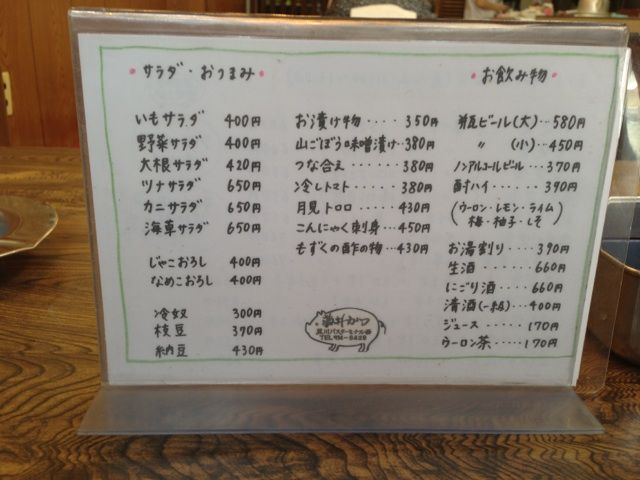 サラダ・おつまみ
いもサラダ 400円
野菜サラダ 400円
大根サラダ 420円
ツナサラダ 650円
カニサラダ 650円
海草サラダ 650円
じゃこおろし 400円
なめこおろし 400円
冷奴 300円
枝豆 370円
納豆 430円
お漬け物‥‥350円
山ごぼう味噌漬け‥380円
つな合え‥‥‥380円
冷しトマト‥‥‥380円
月見トロロ‥‥430円
こんにゃく刺身‥‥450円
もずくの酢の物‥430円
TEL
お飲み物
瓶ビール(大)‥580円
〃 (小)‥450円
ノンアルコールビール‥370円
酎ハイ‥‥‥390円
(ウーロン・レモン・ライム
梅・柚子・しそ)
お湯割り‥‥390円
生酒‥‥‥660円
にごり酒‥‥660円
清酒(一級)‥400円
ジュース‥‥‥170円
ウーロン茶‥‥170円